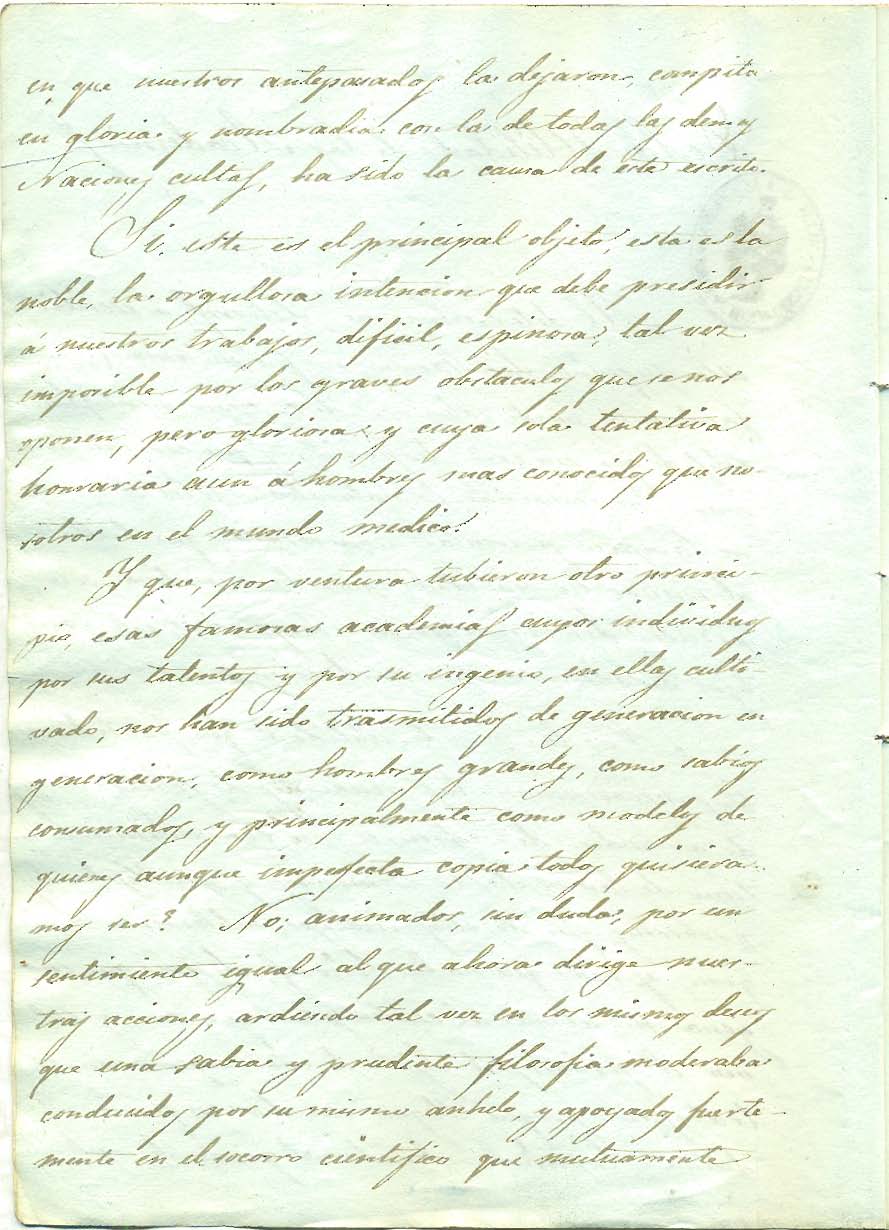 en que nuestros antepasados la dejaron, compita
en gloria y nombradia con la de todas las demas
Naciones cultas, ha sido la causa de este escrito.
Si, este es el principal objeto, esta es la
noble, la orgullosa intencion que debe presidir
á nuestros trabajos, dificil, espinosa, tal vez
imposible por los graves obstaculos que se nos
oponen, pero gloriosa y cuya sola tentativa
honraria aun á hombres mas conocidos que no-
sotros en el mundo medico.
Y que, por ventura tubieron otro princi-
pio, esas famosas academias cuyos individuos
por sus talentos y por su ingenio, en ellas culti-
vado, nos han sido trasmitidos de generacion en
generacion, como hombres grandes, como sabios
consumados, y principalmente como modelos de
quienes aunque imperfecta copia todos quisiera-
mos ser? No; animados, sin duda, por un
sentimiento igual al que ahora dirige nues-
tras acciones, ardiendo tal vez en los mismos deseos
que una sabia y prudente filosofia moderaba
conducidos por su mismo anhelo, y apoyados fuerte-
mente en el socorro cientifico que mutuamente